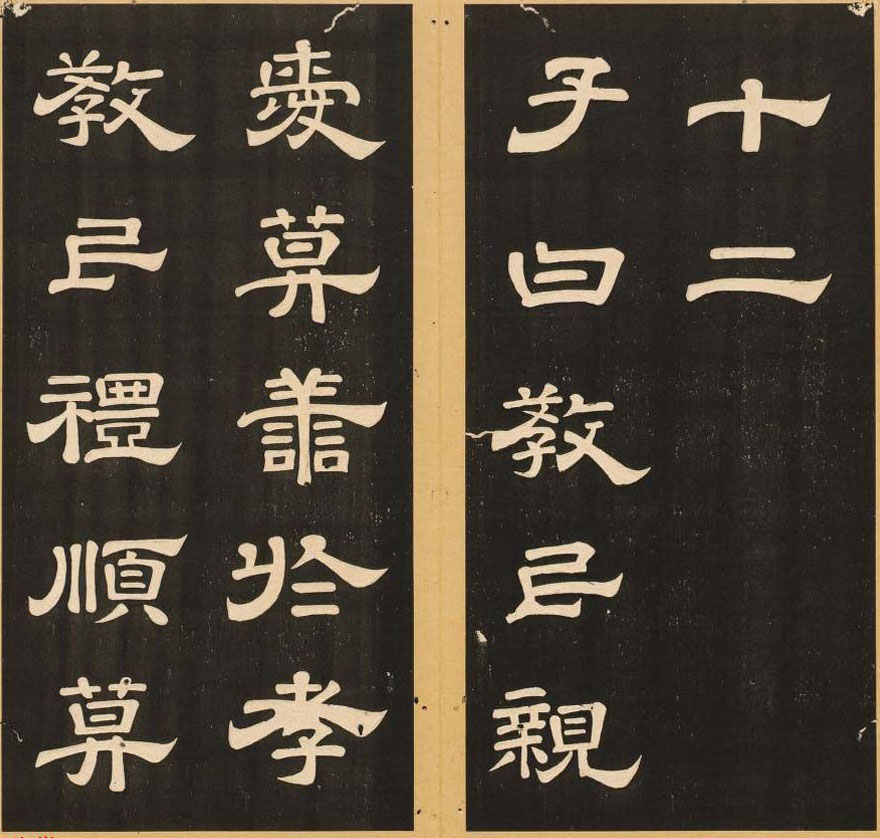 十二
子曰教民親
愛莫善於孝
教民禮順莫